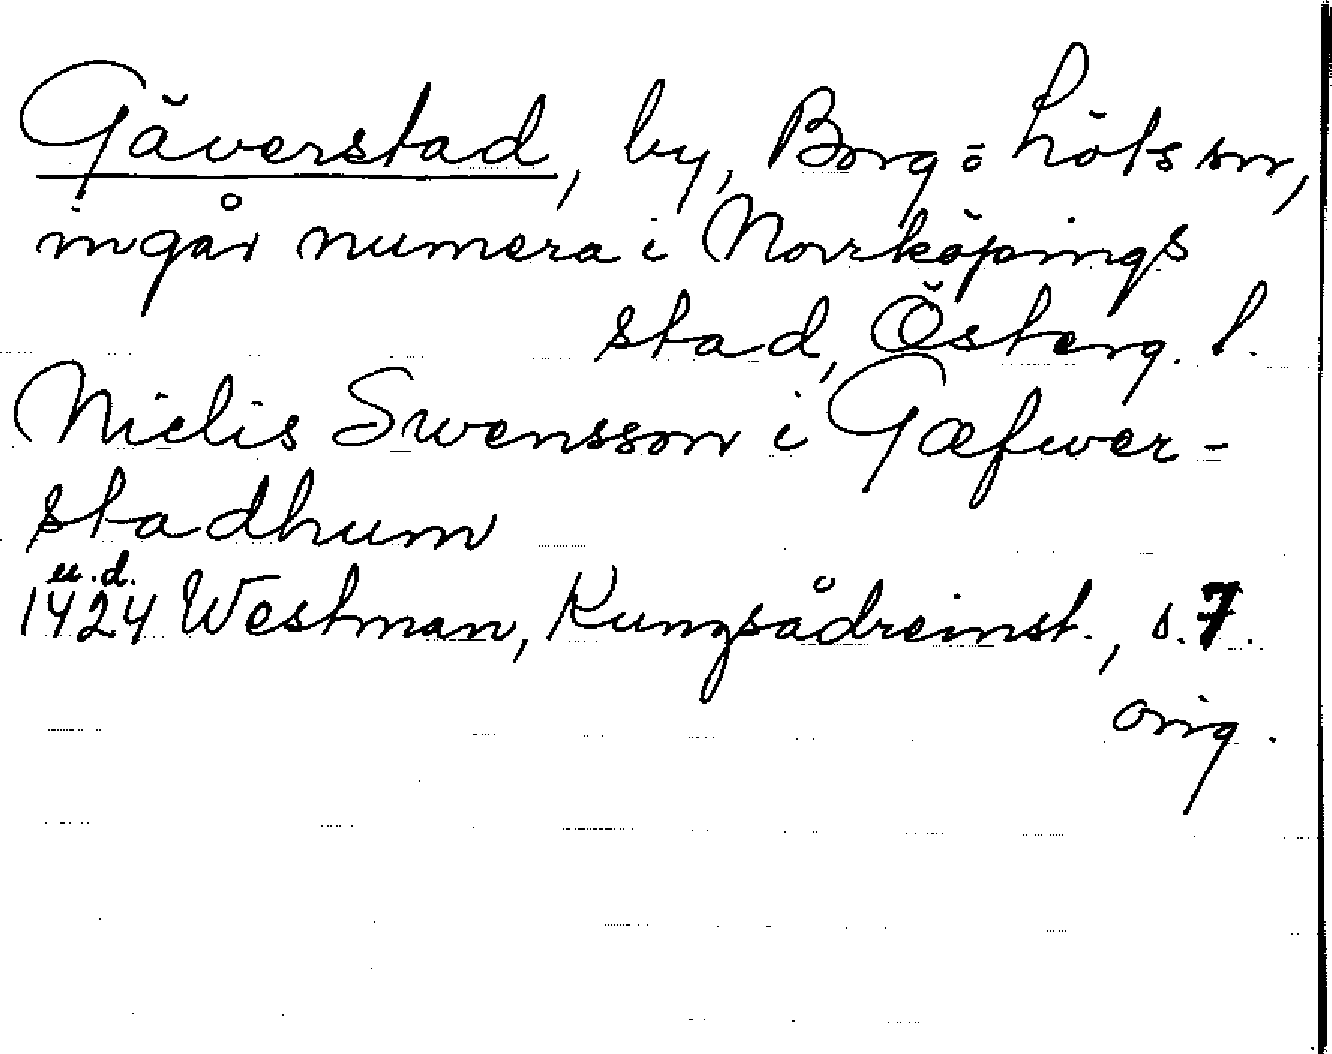 Gäverstad, by, Borg o Löts sn,
ingår numera i Norrköpings
stad, Österg. l.
Nielis Swensson i Gæfwer-
stadhum
u.d.
1424 Westman, Kungsådreinst., s. 7.
orig.